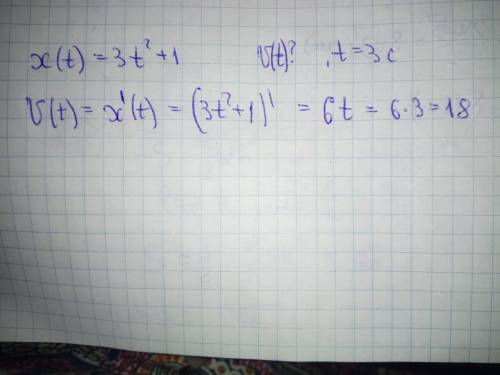 x(t) = 3t² + 1 V(t)? , t = 3 c
V(t) = x'(t) = (3t² + 1)' = 6t = 6·3 = 18